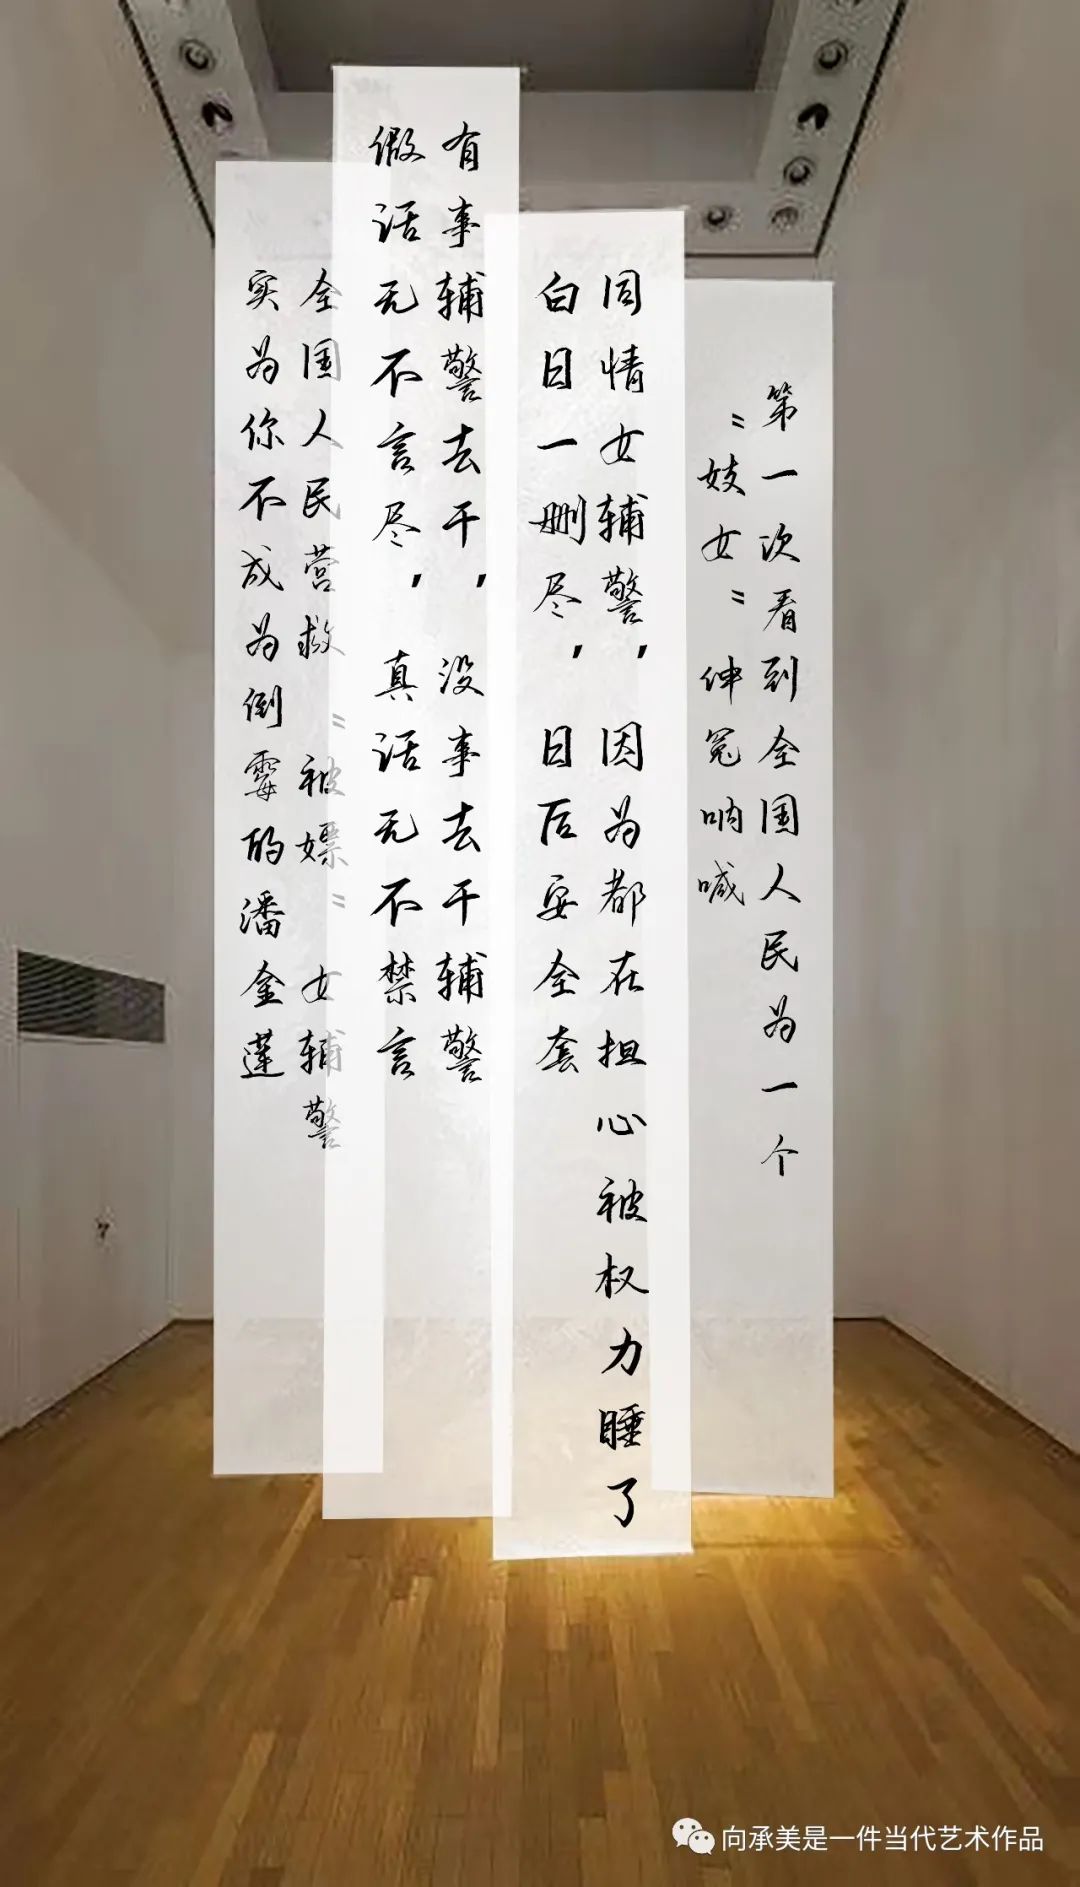 第一次看到全国人民为一个
“妓女”伸冤呐喊
同情女辅警，因为都在担心被权力睡了
白日一删尽，日后要全套
有事辅警去干，没事去干辅警
假话无不言尽，真话无不禁言
全国人民营救“被嫖”女辅警
实为你不成为倒霉的潘金莲
向承美是一件当代艺术作品